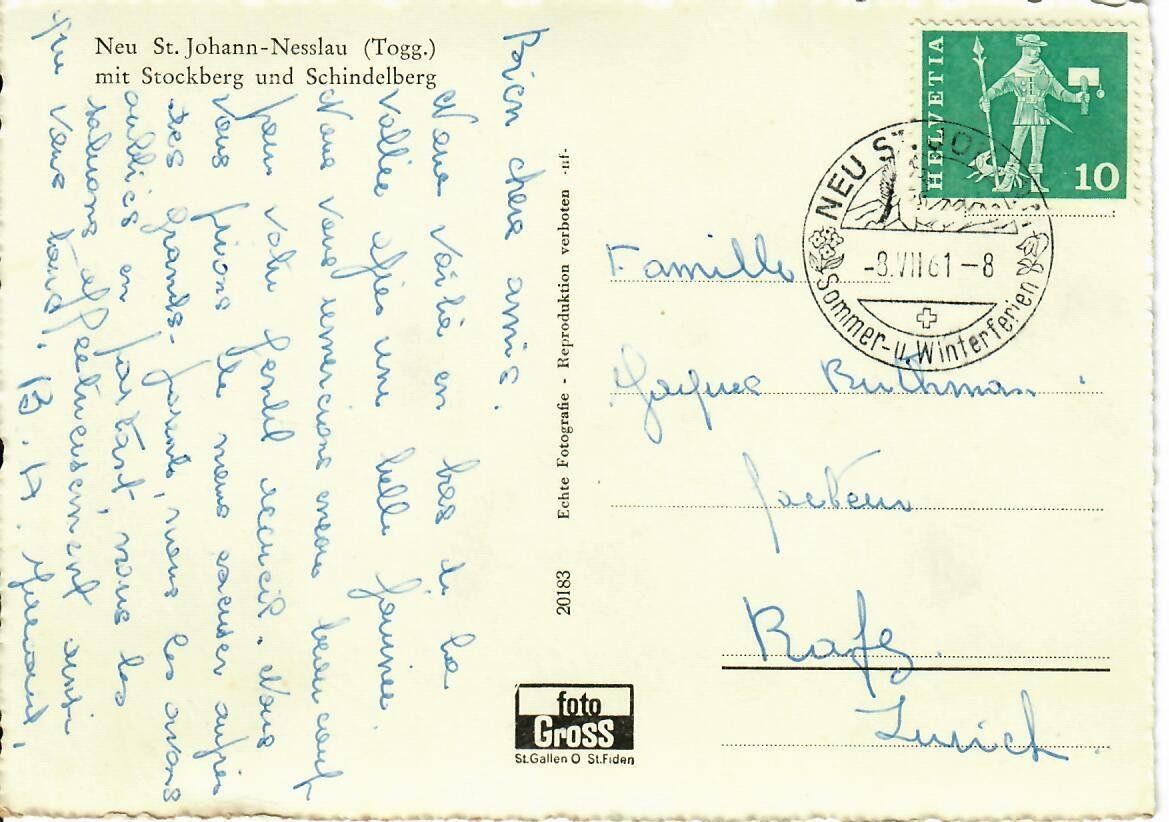 Neu St. Johann-Nesslau (Togg.)
mit Stockberg und Schindelberg
Bien chers amis.
Nous voilà en bas de la
vallée après une belle journée.
Nous vous remercions encore beaucoup
pour votre gentil accueil. Nous
vous prions de nous excuser auprès
des grands-parents, nous les avons
oubliés en partant, nous les
saluons affectueusement ainsi
que vous tous. B. H.
Echte Fotografie - Reproduktion verboten -nf-
20183
foto
Gross
St.Gallen O St.Fiden
HELVETIA
10
NEU ST. JOHANN
-8.VII 61-8
Sommer-u.Winterferien
Famille
Jaques
facteur
Rafz.
Zurich.